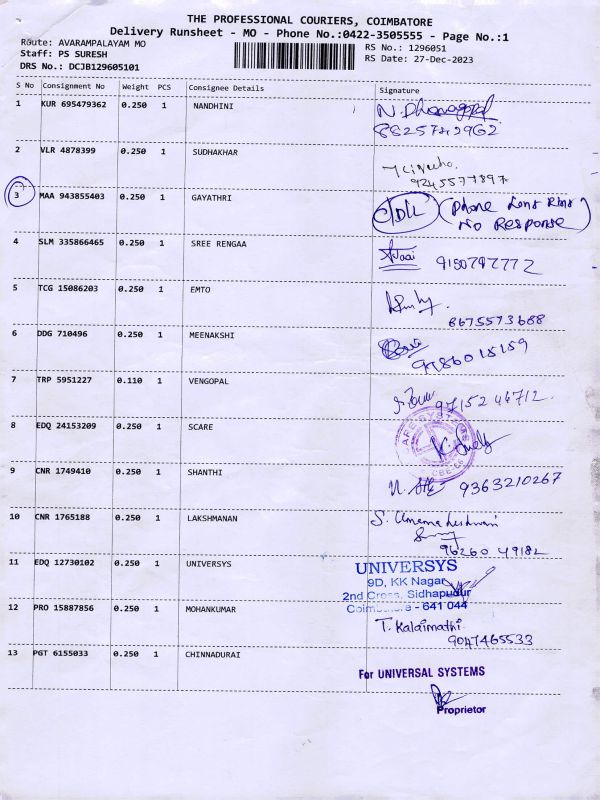 THE PROFESSIONAL COURIERS, COIMBATORE
Delivery Runsheet - MO - Phone No.:0422-3505555 - Page No.:1
Route: AVARAMPALAYAM MO
RS No.: 1296051
Staff: PS SURESH
RS Date: 27-Dec-2023
DRS No.: DCJB129605101
S No Consignment No Weight PCS Consignee Details Signature
1 KUR 695479362 0.250 1 NANDHINI N. Dhanagopal
8825742962
2 VLR 4878399 0.250 1 SUDHAKHAR
9245577897
3 MAA 943855403 0.250 1 GAYATHRI C/DL (Phone Long Ring
No Response)
4 SLM 335866465 0.250 1 SREE RENGAA
9150797772
5 TCG 15086203 0.250 1 EMTO
8675573688
6 DDG 710496 0.250 1 MEENAKSHI
9786015159
7 TRP 5951227 0.110 1 VENGOPAL 9715246712.
8 EDQ 24153209 0.250 1 SCARE
9 CNR 1749410 0.250 1 SHANTHI 9363210267
10 CNR 1765188 0.250 1 LAKSHMANAN S. Umamaheshwari
96260 49182
11 EDQ 12730102 0.250 1 UNIVERSYS UNIVERSYS
9D, KK Nagar
2nd Cross, Sidhapudur
Coimbatore - 641 044
12 PRO 15887856 0.250 1 MOHANKUMAR T. Kalaimathi
9047465533
13 PGT 6155033 0.250 1 CHINNADURAI For UNIVERSAL SYSTEMS
Proprietor